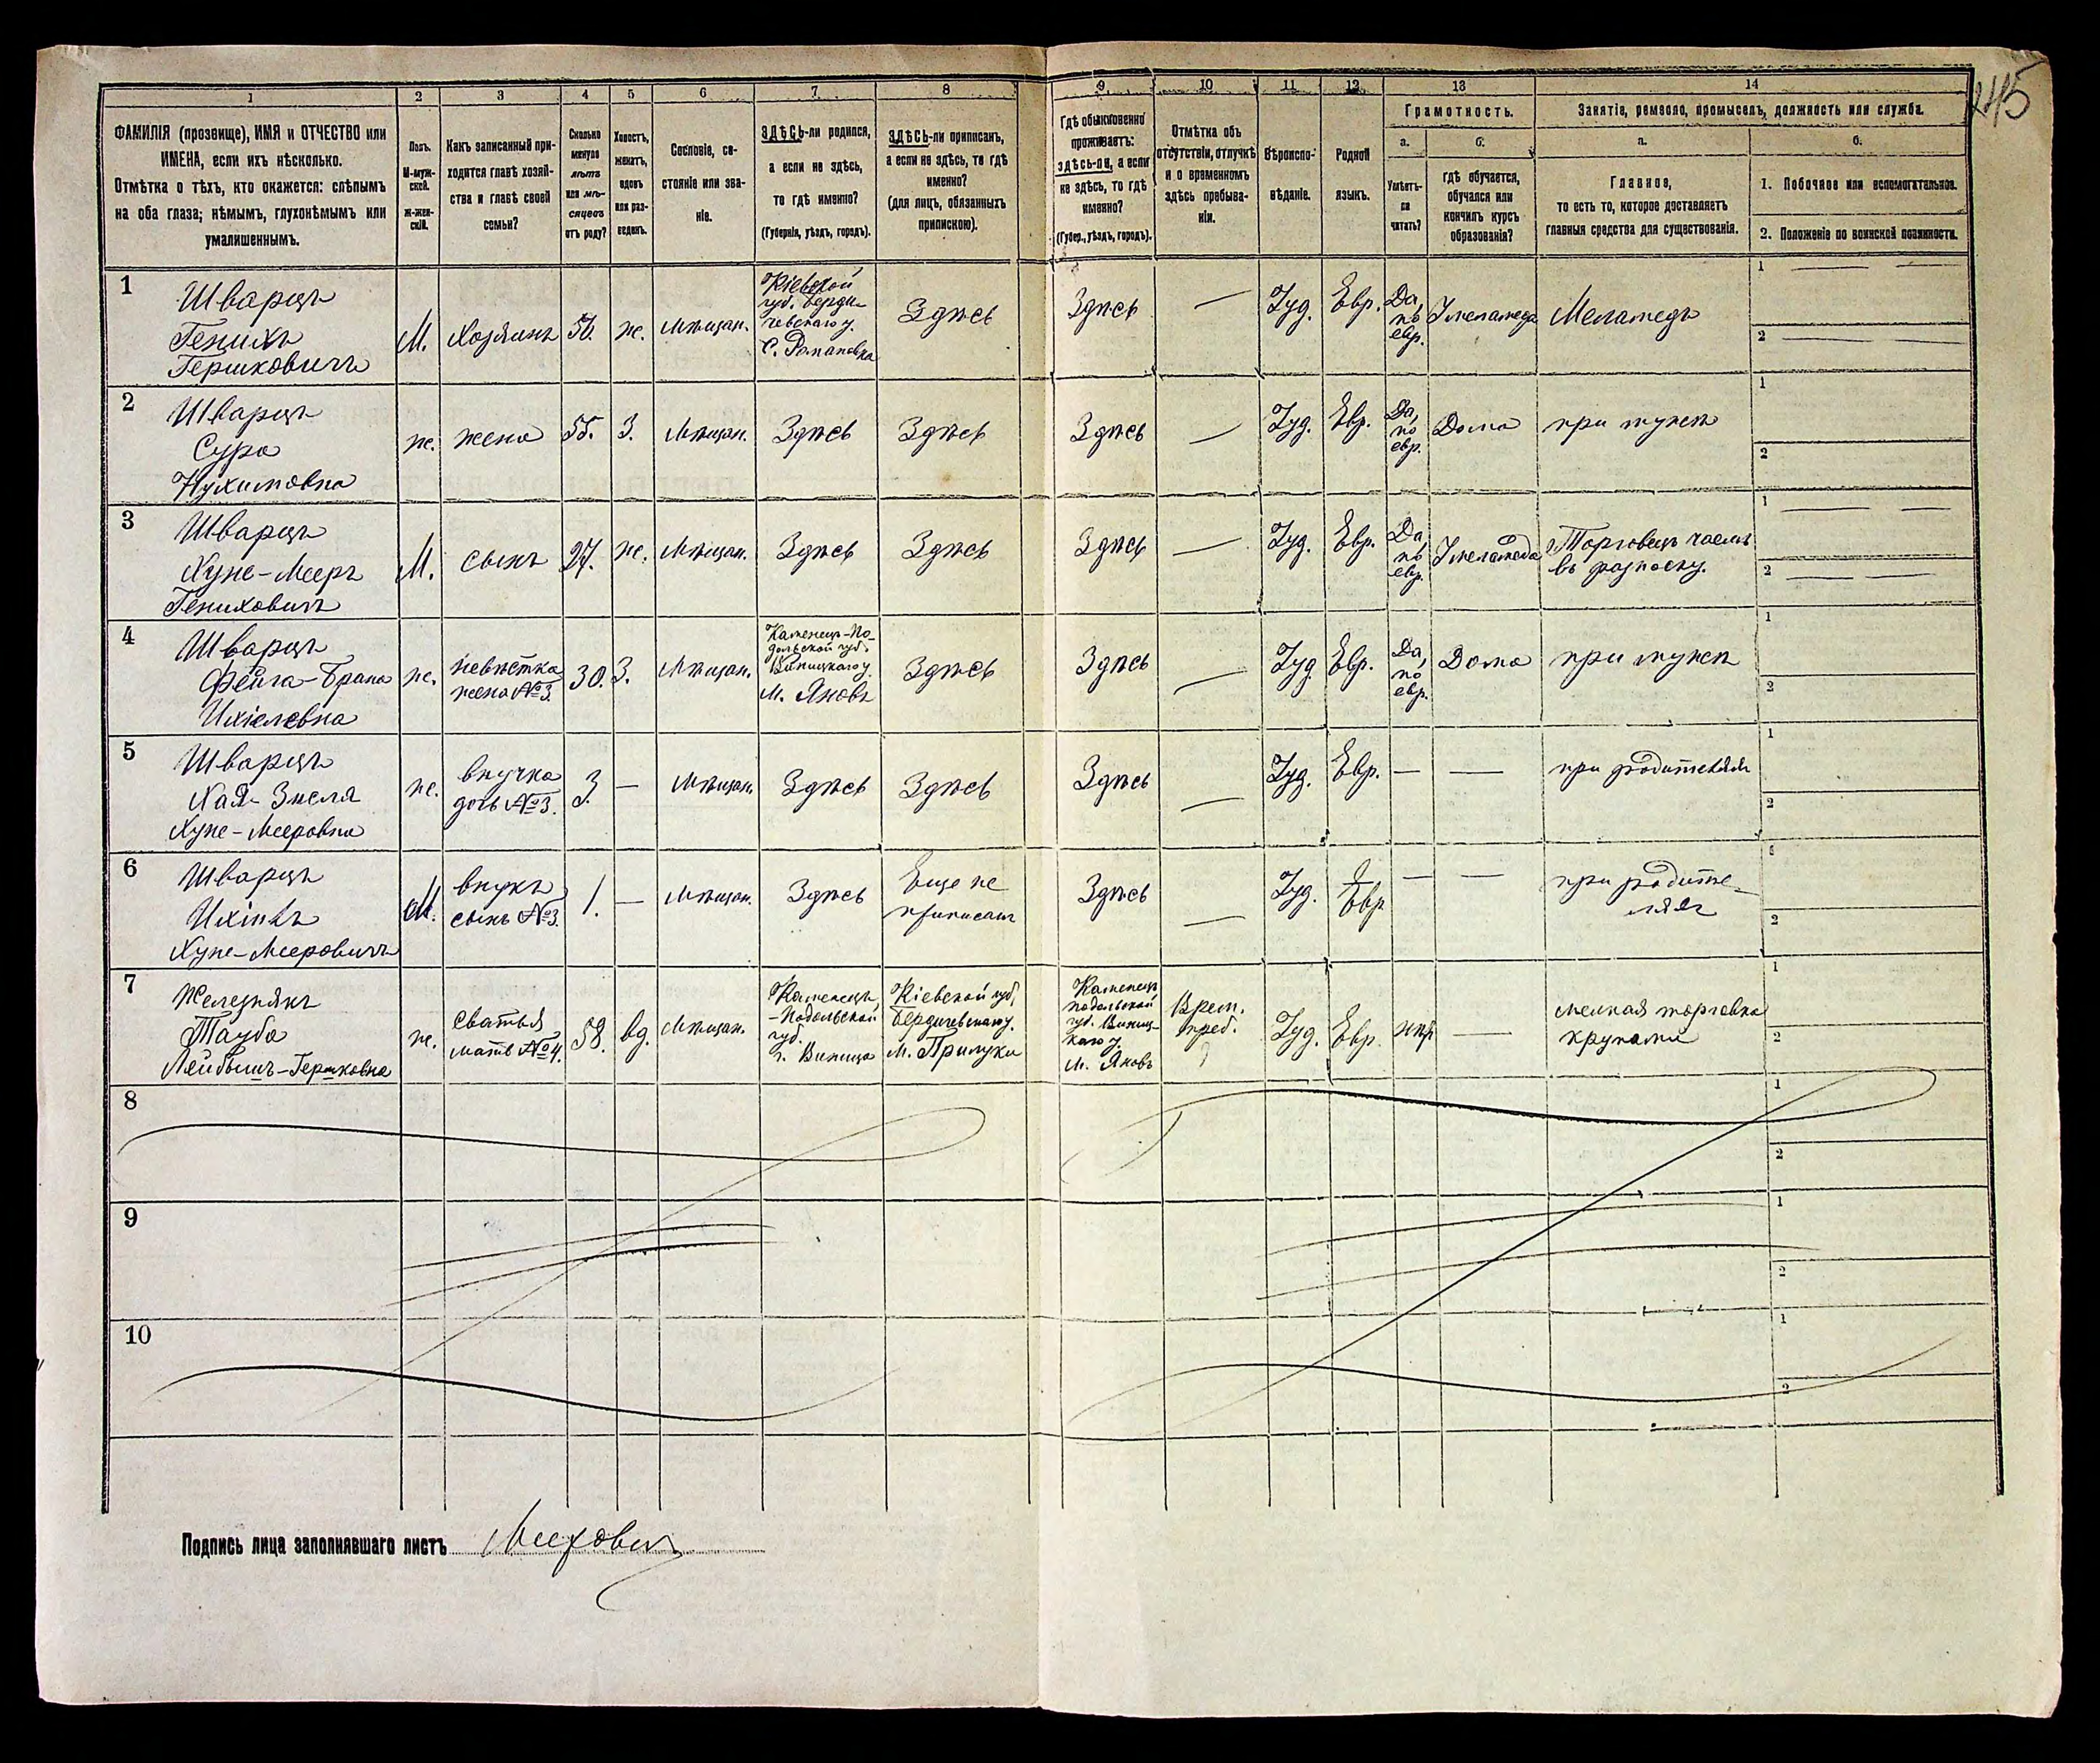 245
1 2 3 4 5 6 7 8 9 10 11 12 13 14
ФАМИЛІЯ (прозвище), ИМЯ и ОТЧЕСТВО или
ИМЕНА, если ихъ нѣсколько.
Отмѣтка о тѣхъ, кто окажется: слѣпымъ
на оба глаза; нѣмымъ, глухонѣмымъ или
умалишеннымъ.
Полъ.
М-муж-
ской.
Ж-жен-
скій.
Какъ записанный при-
ходится главѣ хозяй-
ства и главѣ своей
семьи?
Сколько
минуло
лѣтъ
или мѣ-
сяцевъ
отъ роду?
Холостъ,
женатъ,
вдовъ
или раз-
веденъ.
Сословіе, со-
стояніе или зва-
ніе.
ЗДѢСЬ-ли родился,
а если не здѣсь,
то гдѣ именно?
(Губернія, уѣздъ, городъ).
ЗДѢСЬ-ли приписанъ,
а если не здѣсь, то гдѣ
именно?
(для лицъ, обязанныхъ
припискою).
Гдѣ обыкновенно
проживаетъ:
здѣсь-ли, а если
не здѣсь, то гдѣ
именно?
(Губер., уѣздъ, городъ).
Отмѣтка объ
отсутствіи, отлучкѣ
и о временномъ
здѣсь пребыва-
ніи.
Вѣроиспо-
вѣданіе.
Родной
языкъ.
Грамотность.
а.
Умѣетъ-
ли
читать?
б.
гдѣ обучается,
обучался или
кончилъ курсъ
образованія?
Занятіе, ремесло, промыселъ, должность или служба.
а.
Главное,
то есть то, которое доставляетъ
главныя средства для существованія.
б.
1. Побочное или вспомогательное.
2. Положеніе по воинской повинности.
1
Шварцъ
Генихъ
Гершковичъ
М.
Хозяинъ
57.
ж.
Мѣщан.
Кіевской
губ. Берди-
чевскаго у.
С. Романовка
Здѣсь
Здѣсь
—
Іуд.
Евр.
Да,
по
евр.
У меламеда
Меламедъ
1 — —
2 — —
2
Шварцъ
Сура
Нухимовна
ж.
жена
55.
З.
Мѣщан.
Здѣсь
Здѣсь
Здѣсь
—
Іуд.
Евр.
Да,
по
евр.
Дома
при мужѣ
1
2
3
Шварцъ
Хуне-Мееръ
Гениховичъ
М.
сынъ
27.
ж.
Мѣщан.
Здѣсь
Здѣсь
Здѣсь
—
Іуд.
Евр.
Да,
по
евр.
У меламеда
Торговецъ чаемъ
въ разноску.
1 — —
2 — —
4
Шварцъ
Фейга-Брана
Ихіелевна
ж.
невѣстка
жена №3.
30.
З.
Мѣщан.
Каменецъ-По-
дольской губ.
Виницкаго у.
М. Яновъ
Здѣсь
Здѣсь
—
Іуд.
Евр.
Да,
по
евр.
Дома
при мужѣ
1
2
5
Шварцъ
Хая-Энеля
Хуне-Мееровна
ж.
внучка
дочь №3.
3.
—
Мѣщан.
Здѣсь
Здѣсь
Здѣсь
—
Іуд.
Евр.
—
—
при родителяхъ
1
2
6
Шварцъ
Ихіель
Хуне-Мееровичъ
М.
внукъ
сынъ №3.
1.
—
Мѣщан.
Здѣсь
Еще не
приписанъ
Здѣсь
—
Іуд.
Евр
—
—
при родите-
ляхъ
2
7
Железнякъ
Тауба
Лейбышъ-Гершковна
ж.
сватья
мать №4.
58.
вд.
Мѣщан.
Каменецъ
-Подольской
губ.
г. Виница
Кіевской губ,
Бердичевскаго у.
м. Прилуки
Каменецъ
подольской
губ. Виниц-
каго у.
м. Яновъ
Врем.
преб.
Іуд.
Евр.
нѣтъ
—
мелкая торговка
крупами
1
2
8
1
2
9
1
2
10
1
2
Подпись лица заполнявшаго листъ